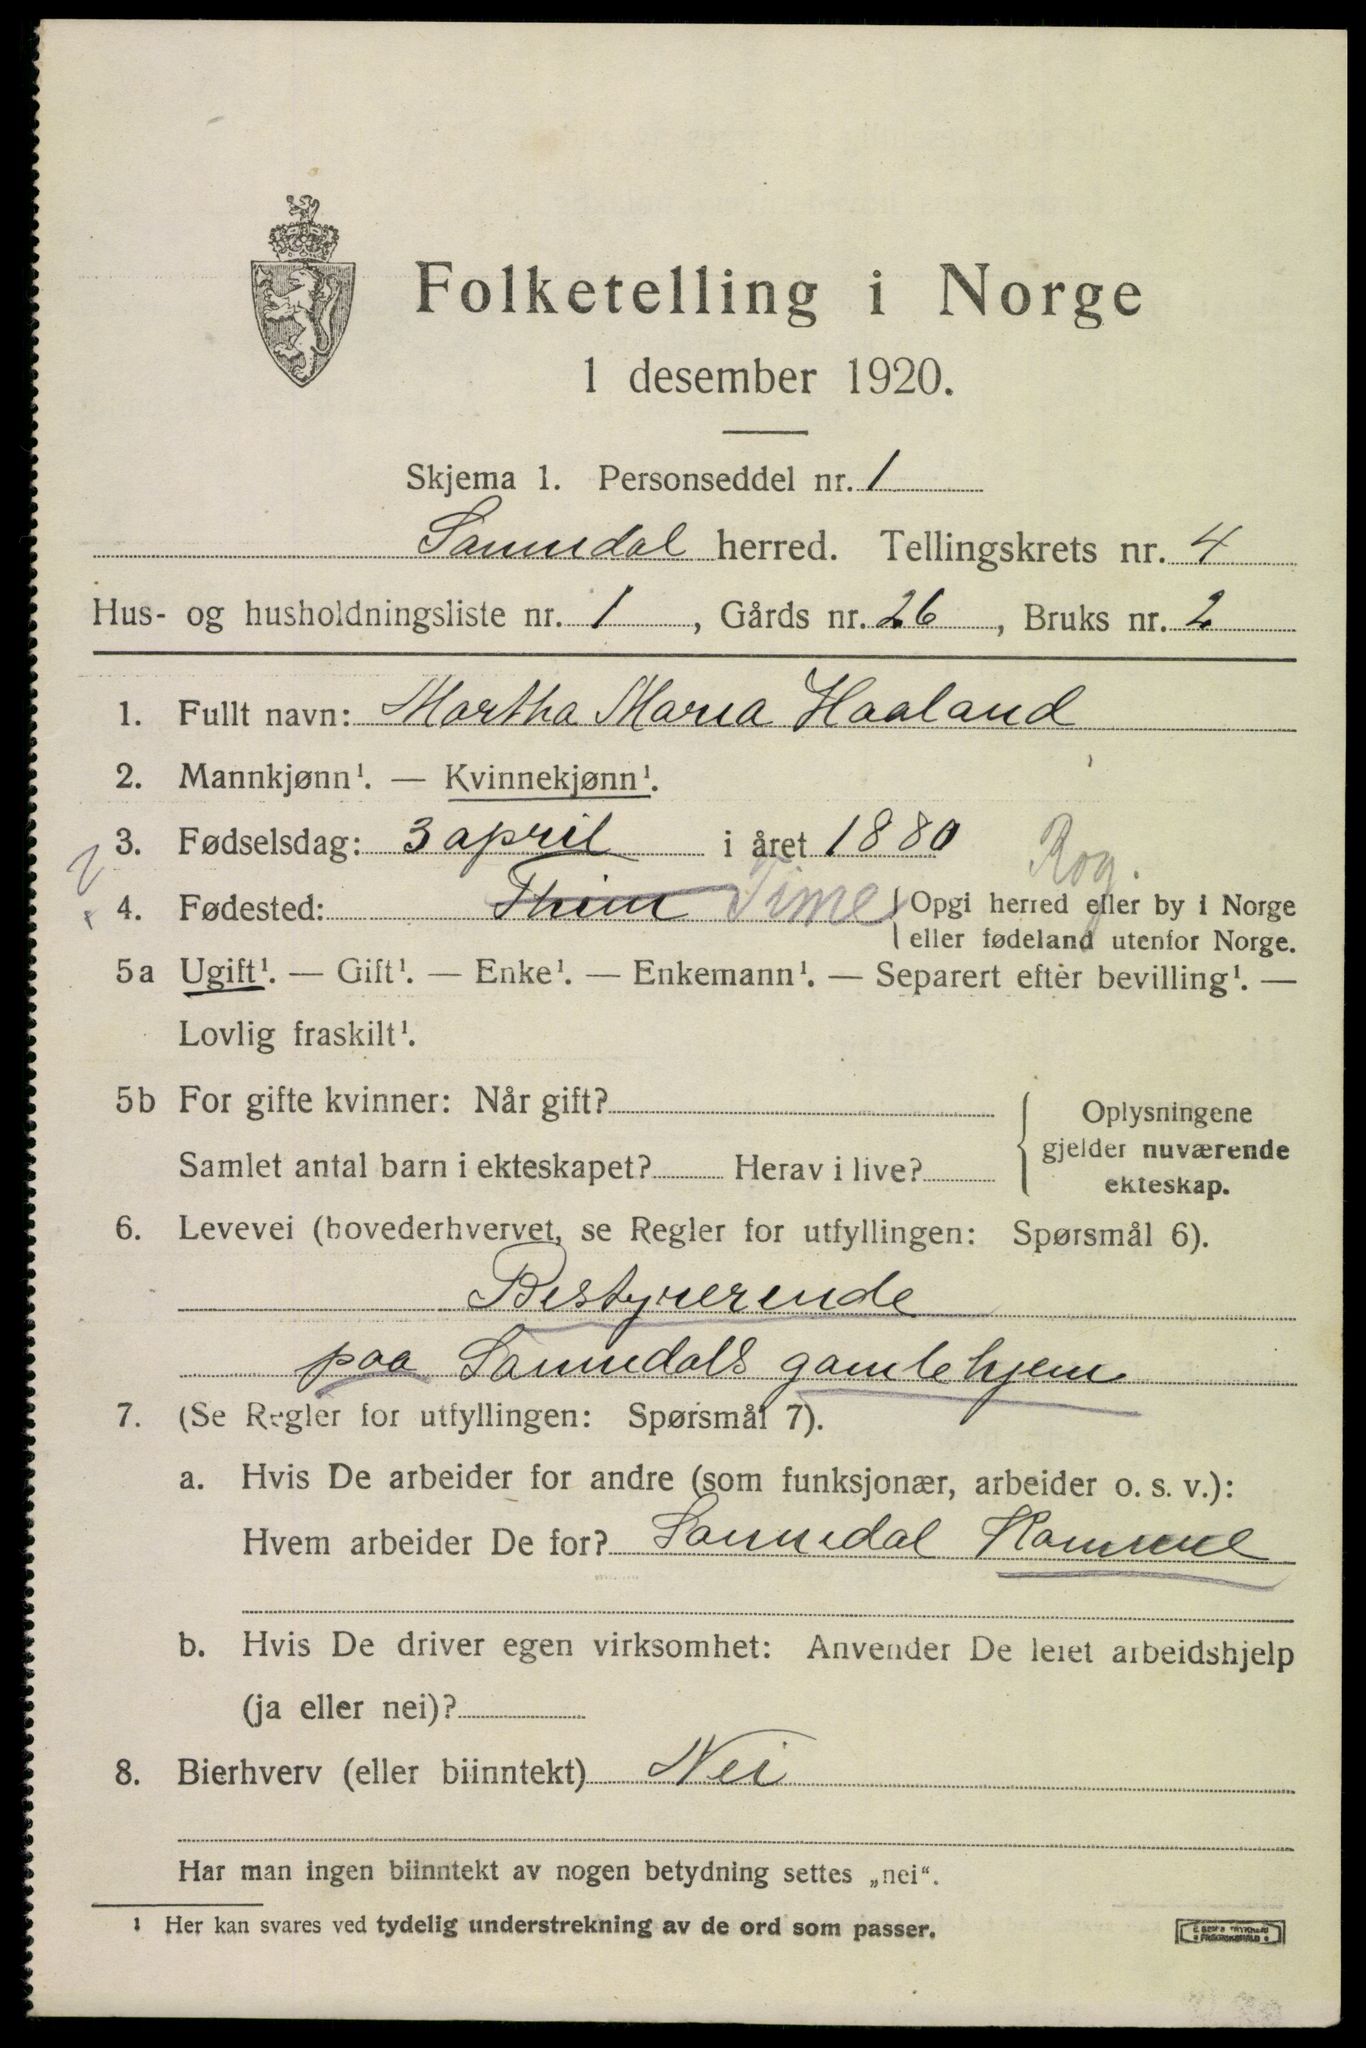 Folketelling i Norge
1 desember 1920.
Skjema 1. Personseddel nr. 1
Sanndal herred. Tellingskrets nr. 4
Hus- og husholdningsliste nr. 1, Gårds nr. 26, Bruks nr. 2
1. Fullt navn: Martha Maria Haaland
2. Mannkjønn¹. — Kvinnekjønn¹.
3. Fødselsdag: 3 april i året 1880
Rog.
4. Fødested: Thim Time Opgi herred eller by i Norge
eller fødeland utenfor Norge.
5a Ugift¹. — Gift¹. — Enke¹. — Enkemann¹. — Separert efter bevilling¹. —
Lovlig fraskilt¹.
5b For gifte kvinner: Når gift?
Samlet antal barn i ekteskapet? Herav i live?
Oplysningene
gjelder nuværende
ekteskap.
6. Levevei (hovederhvervet, se Regler for utfyllingen: Spørsmål 6).
Bestyrerende
paa Sanndals gamlehjem
7. (Se Regler for utfyllingen: Spørsmål 7).
a. Hvis De arbeider for andre (som funksjonær, arbeider o. s. v.):
Hvem arbeider De for? Sanndal
b. Hvis De driver egen virksomhet: Anvender De leiet arbeidshjelp
(ja eller nei)?
8. Bierhverv (eller biinntekt) Nei
Har man ingen biinntekt av nogen betydning settes „nei“.
¹ Her kan svares ved tydelig understrekning av de ord som passer.